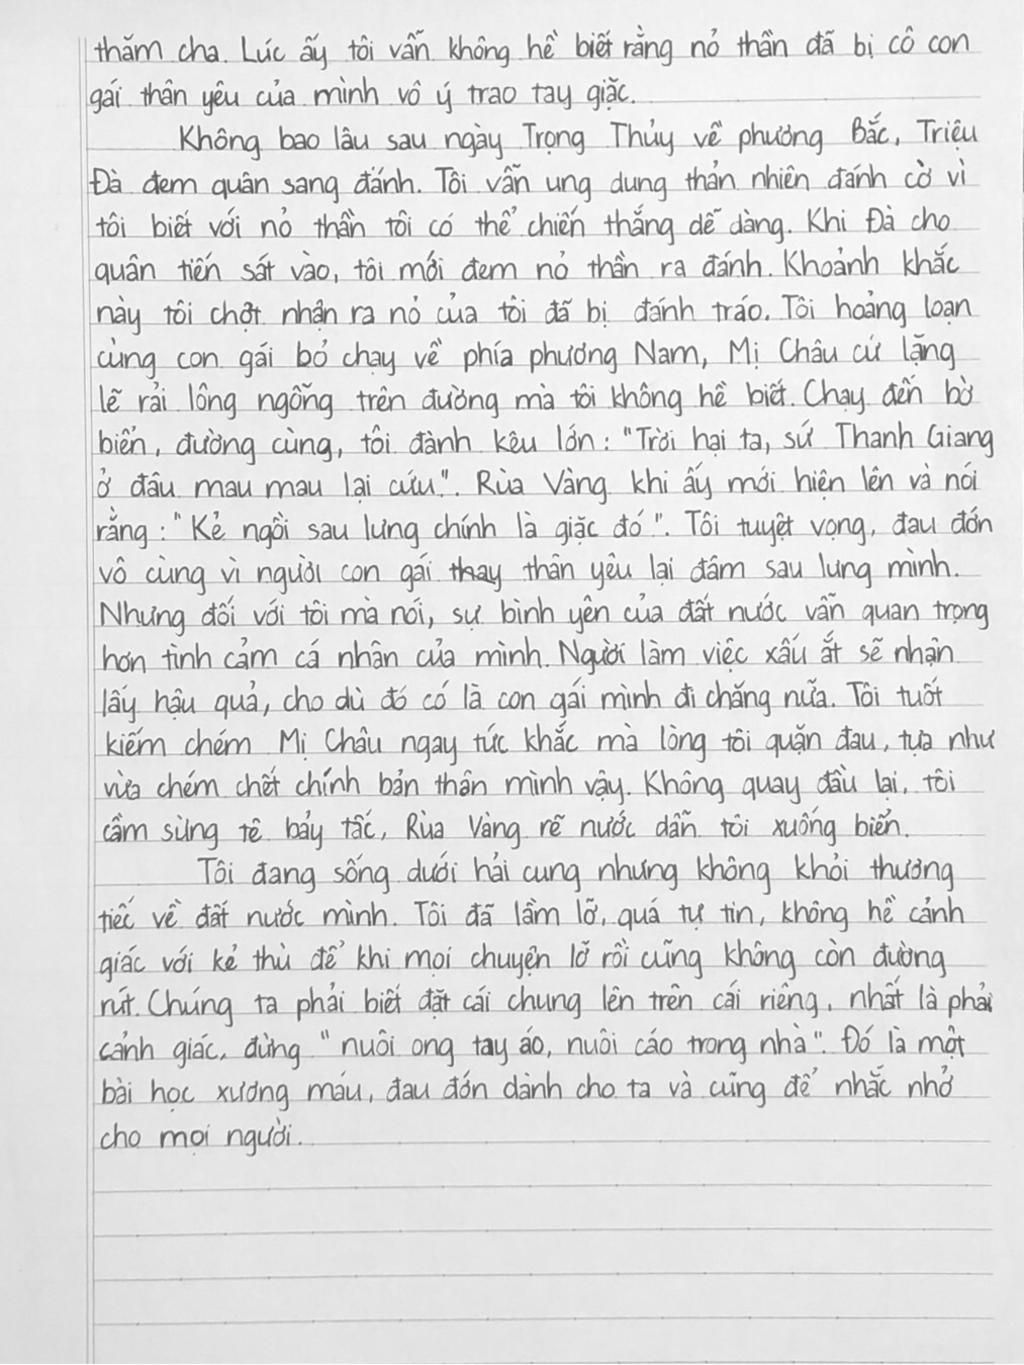 thăm cha. Lúc ấy tôi vẫn không hề biết rằng nỏ thần đã bị cô con
gái thân yêu của mình vô ý trao tay giặc.
Không bao lâu sau ngày Trọng Thủy về phương Bắc, Triệu
Đà đem quân sang đánh. Tôi vẫn ung dung thản nhiên đánh cờ vì
tôi biết với nỏ thần tôi có thể chiến thắng dễ dàng. Khi Đà cho
quân tiến sát vào, tôi mới đem nỏ thần ra đánh. Khoảnh khắc
này tôi chợt nhận ra nỏ của tôi đã bị đánh tráo. Tôi hoảng loạn
cùng con gái bỏ chạy về phía phương Nam, Mị Châu cứ lặng
lẽ rải lông ngỗng trên đường mà tôi không hề biết. Chạy đến bờ
biển, đường cùng, tôi đành kêu lớn: "Trời hại ta, sứ Thanh Giang
ở đâu mau mau lại cứu". Rùa Vàng khi ấy mới hiện lên và nói
rằng: "Kẻ ngồi sau lưng chính là giặc đó". Tôi tuyệt vọng, đau đớn
vô cùng vì người con gái thay thân yêu lại đâm sau lưng mình.
Nhưng đối với tôi mà nói, sự bình yên của đất nước vẫn quan trọng
hơn tình cảm cá nhân của mình. Người làm việc xấu ắt sẽ nhận
lấy hậu quả, cho dù đó có là con gái mình đi chăng nữa. Tôi tuốt
kiếm chém Mị Châu ngay tức khắc mà lòng tôi quặn đau, tựa như
vừa chém chết chính bản thân mình vậy. Không quay đầu lại, tôi
cầm sừng tê bảy tấc, Rùa Vàng rẽ nước dẫn tôi xuống biển.
Tôi đang sống dưới hải cung nhưng không khỏi thương
tiếc về đất nước mình. Tôi đã lầm lỡ, quá tự tin, không hề cảnh
giác với kẻ thù để khi mọi chuyện lỡ rồi cũng không còn đường
rút. Chúng ta phải biết đặt cái chung lên trên cái riêng, nhất là phải
cảnh giác, đừng "nuôi ong tay áo, nuôi cáo trong nhà". Đó là một
bài học xương máu, đau đớn dành cho ta và cũng để nhắc nhở
cho mọi người.